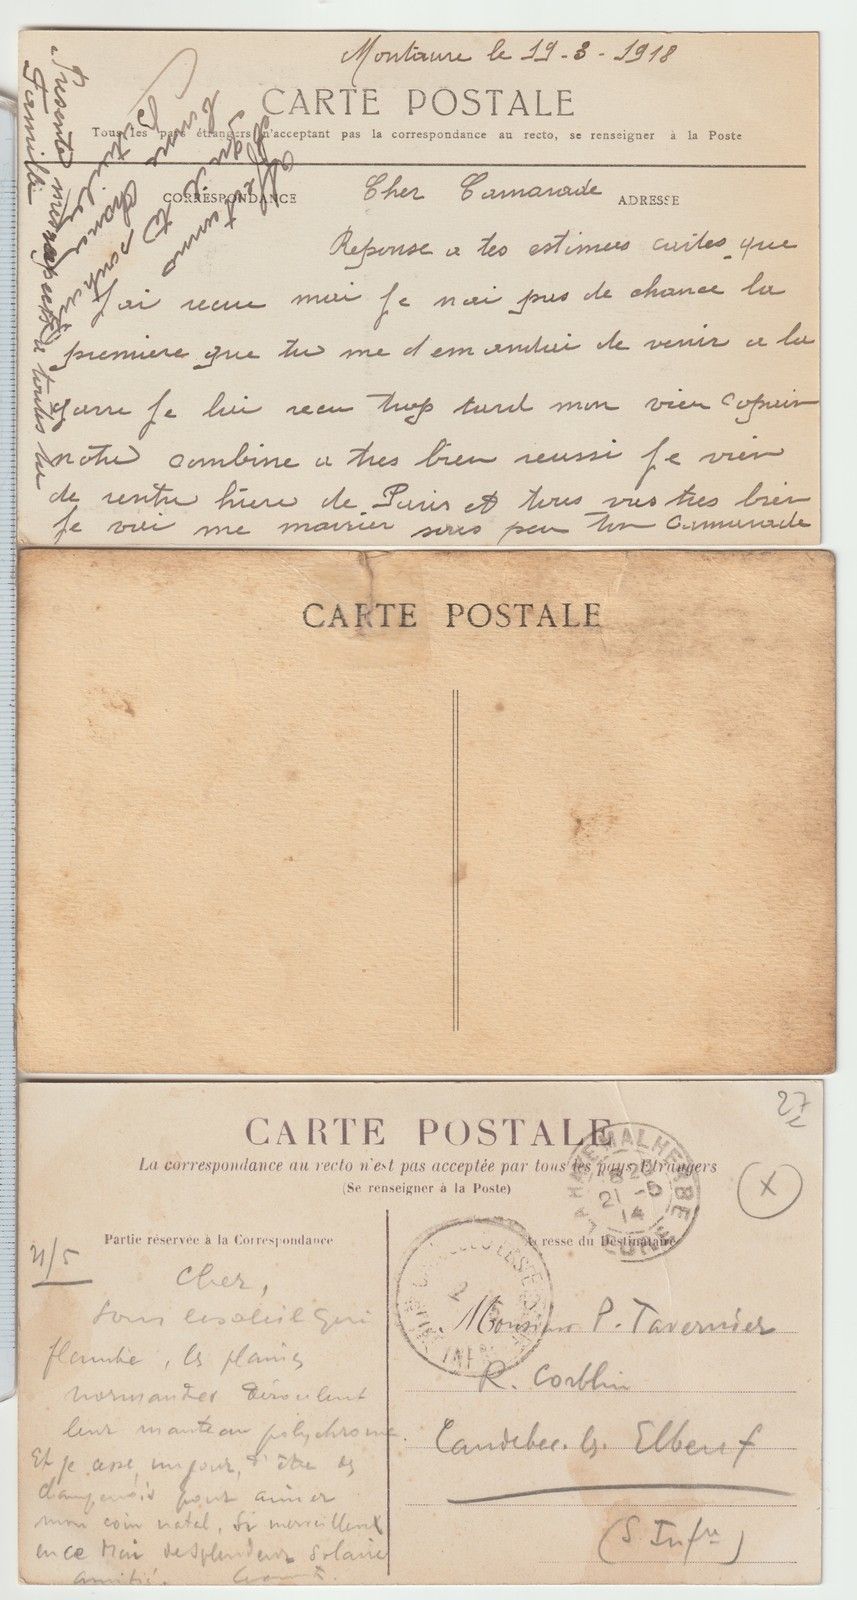 Montaure le 19-3-1918
CARTE POSTALE
Tous les pays étrangers n'acceptant pas la correspondance au recto, se renseigner à la Poste
CORRESPONDANCE
ADRESSE
Cher Camarade
Reponse a tes estimees cartes que
J'ai recue moi je nai pas de chance la
premiere que tu me demandai de venir a la
garre je lai recu trop tard mon vieu copain
notre combine a tres bien reussi je vien
de rentre hiere de Paris et tous vas tres bien
je vai me marier sous peu ton Camarade
Presente mes respects a toutes ta
Famille
CARTE POSTALE
CARTE POSTALE
La correspondance au recto n'est pas acceptée par tous les pays Etrangers
(Se renseigner à la Poste)
Partie réservée à la Correspondance
Adresse du Destinataire
27
X
LA HAYE MALHERBE
EURE
21/5
Cher,
Sous le soleil qui
flambe, les plaines
normandes déroulent
leur manteau polychrome.
Et je cesse, un jour, d'être
pour aimer
mon coin natal, si merveilleux
en ce Mai de splendeur solaire
amitié.
Monsieur P. Tavernier
R. Corblin
Caudebec. les Elbeuf
(S. Infre)